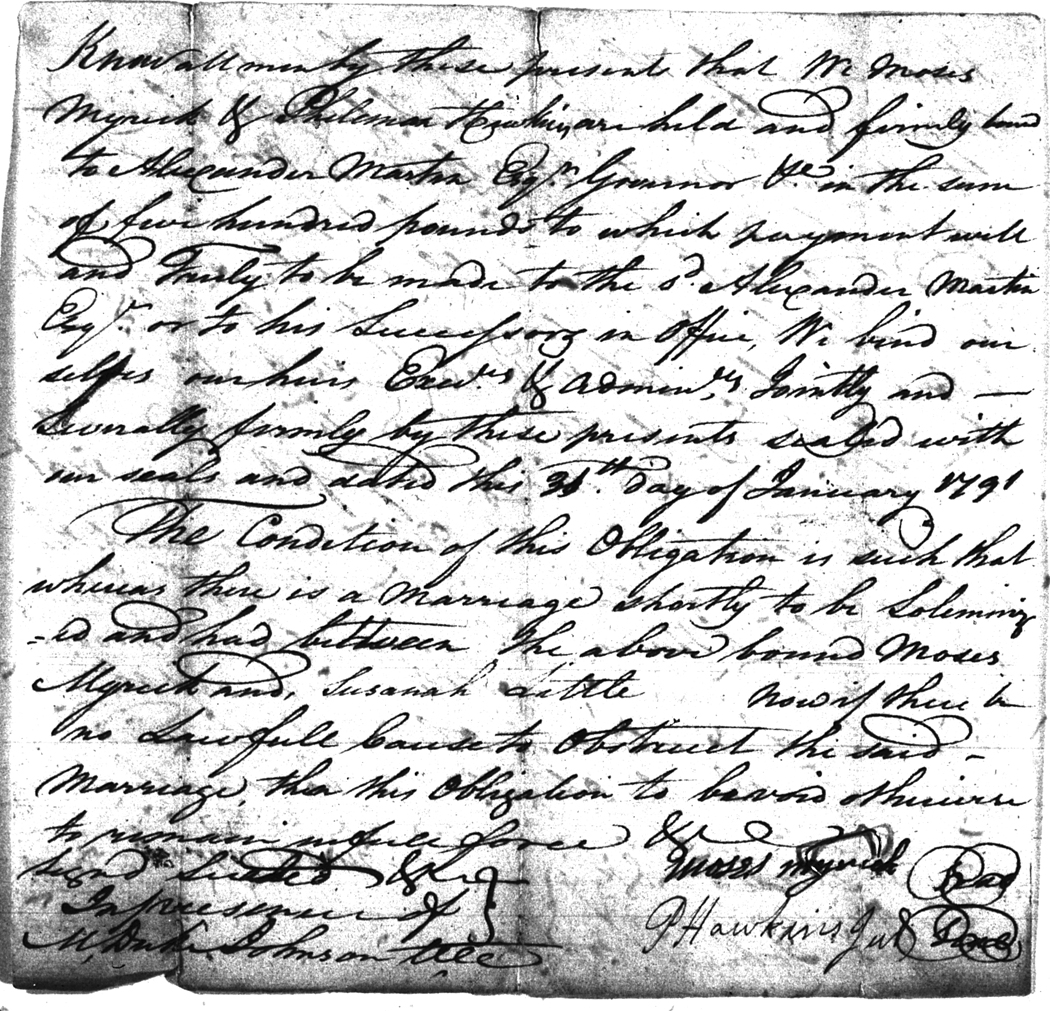 Know all men by these presents that We Moses
Myrick & Philemon Hawkins are held and firmly bound
to Alexander Martin Esqr. Governor &c. in the sum
of five hundred pounds to which payment well
and Truly to be made to the sd. Alexander Martin
Esqr. or to his Successors in Office, We bind our
selves our heirs Exors & Adminrs, Jointly and —
Severally firmly by these presents sealed with
our seals and dated this 31th. day of January 1791
The Condition of this Obligation is such that
whereas there is a Marriage shortly to be Solemniz
-ed and had between the above bound Moses
Myrick and, Susanah Little now if there be
no Lawfull Cause to Obstruct the said -
Marriage, then this Obligation to be void otherwise
to remain in full force &c
Signd Sealed &c Moses Myrick Seal
In presence of
P Hawkins Jur Seal
M, Duke Johnson